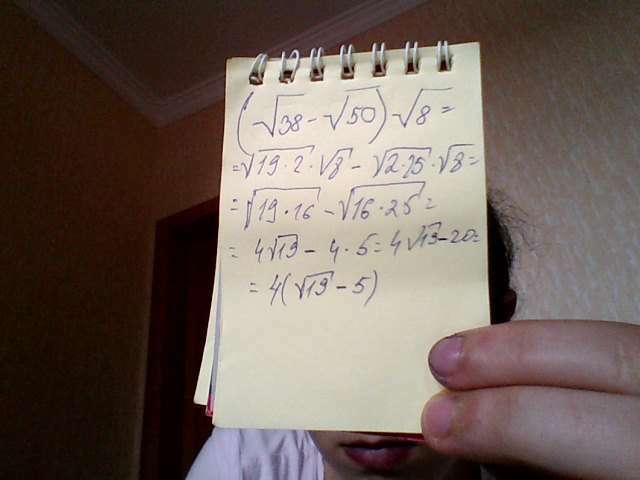 (√38 - √50) · √8 =
= √19·2 · √8 - √2·25 · √8 =
= √19·16 - √16·25 =
= 4√19 - 4·5 = 4√19 - 20 =
= 4(√19 - 5)